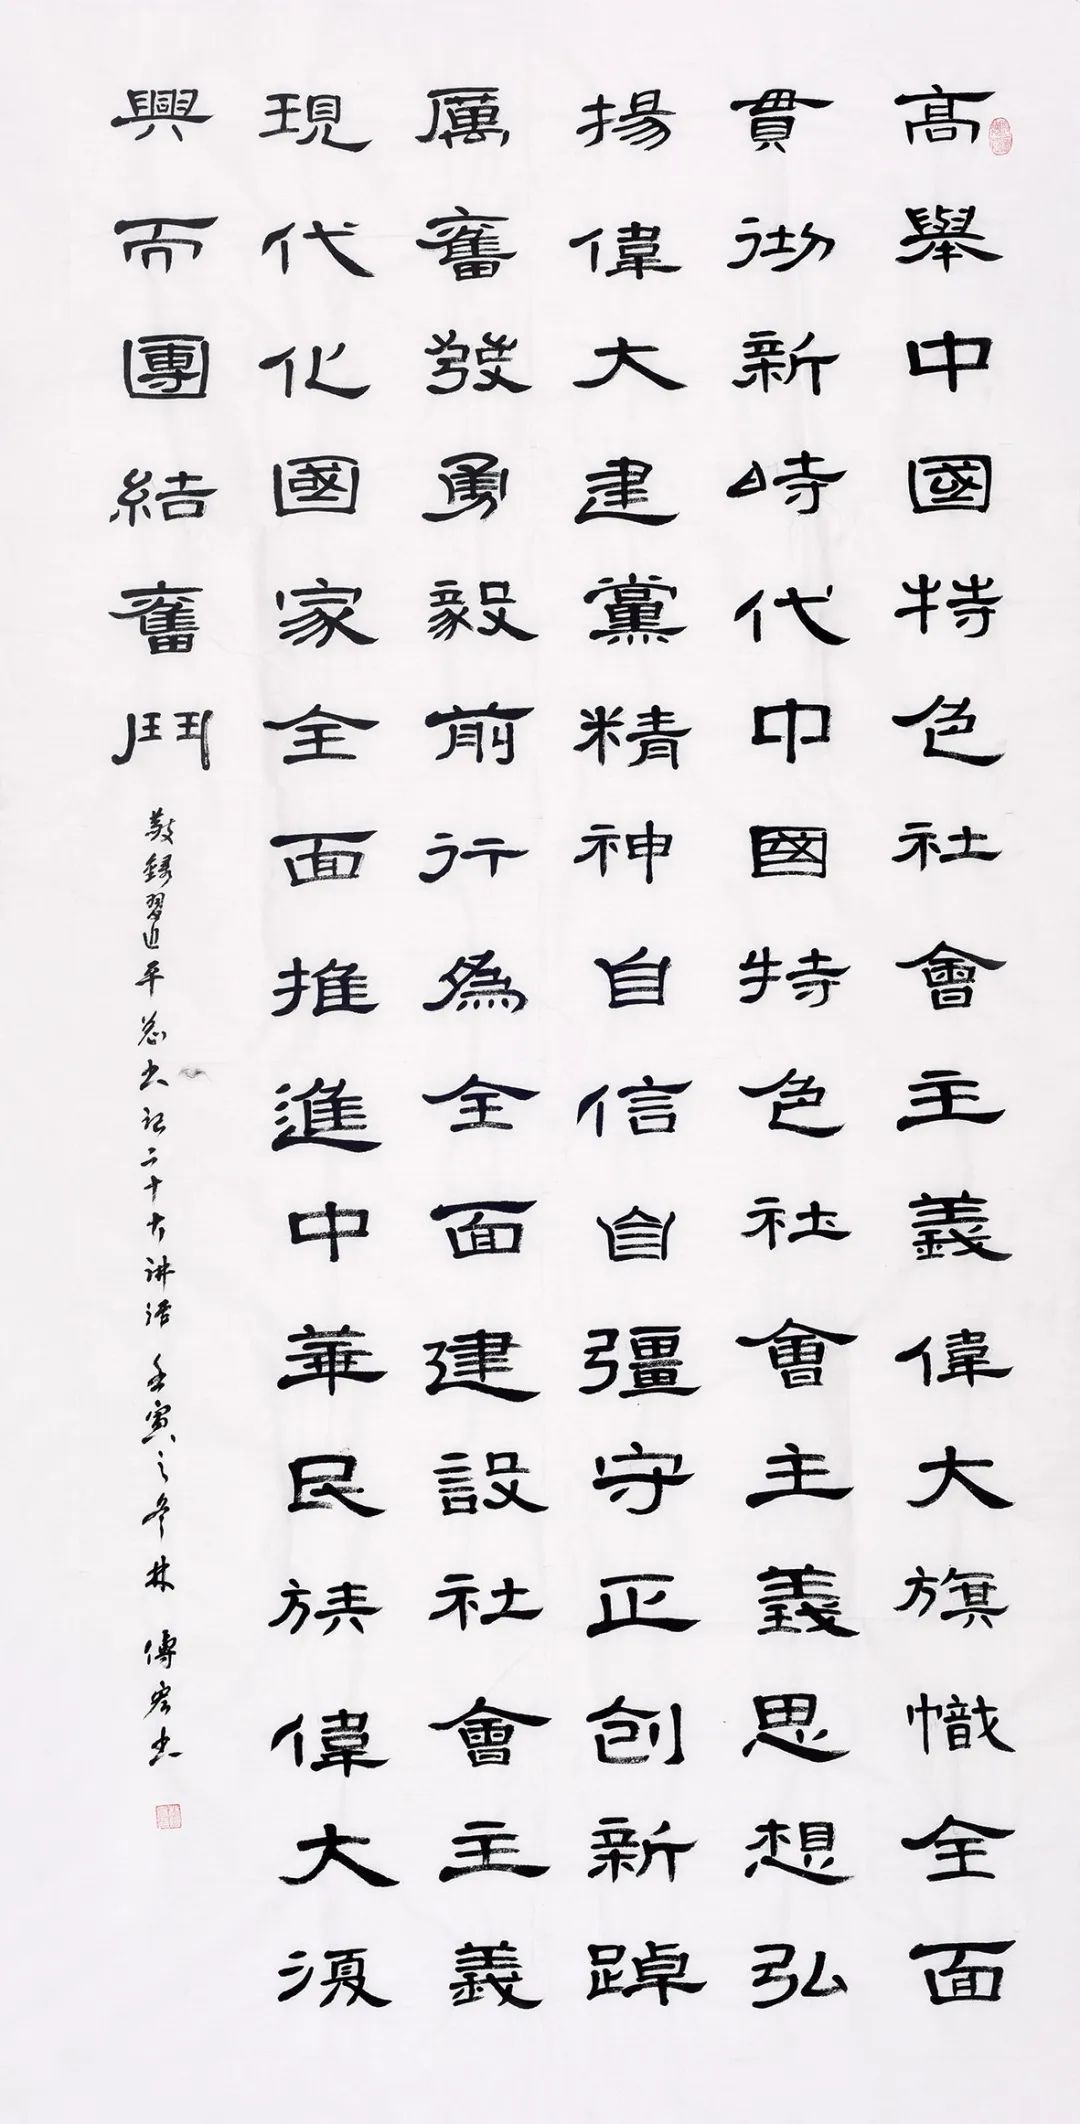 高舉中國特色社會主義偉大旗幟全面
貫彻新時代中國特色社會主義思想弘
揚偉大建黨精神自信自彊守正创新踔
厲奮發勇毅前行為全面建設社會主義
現代化國家全面推進中華民族偉大復
興而團結奮鬥
敬錄習近平总书记二十大讲话 壬寅之冬林 傅宏书